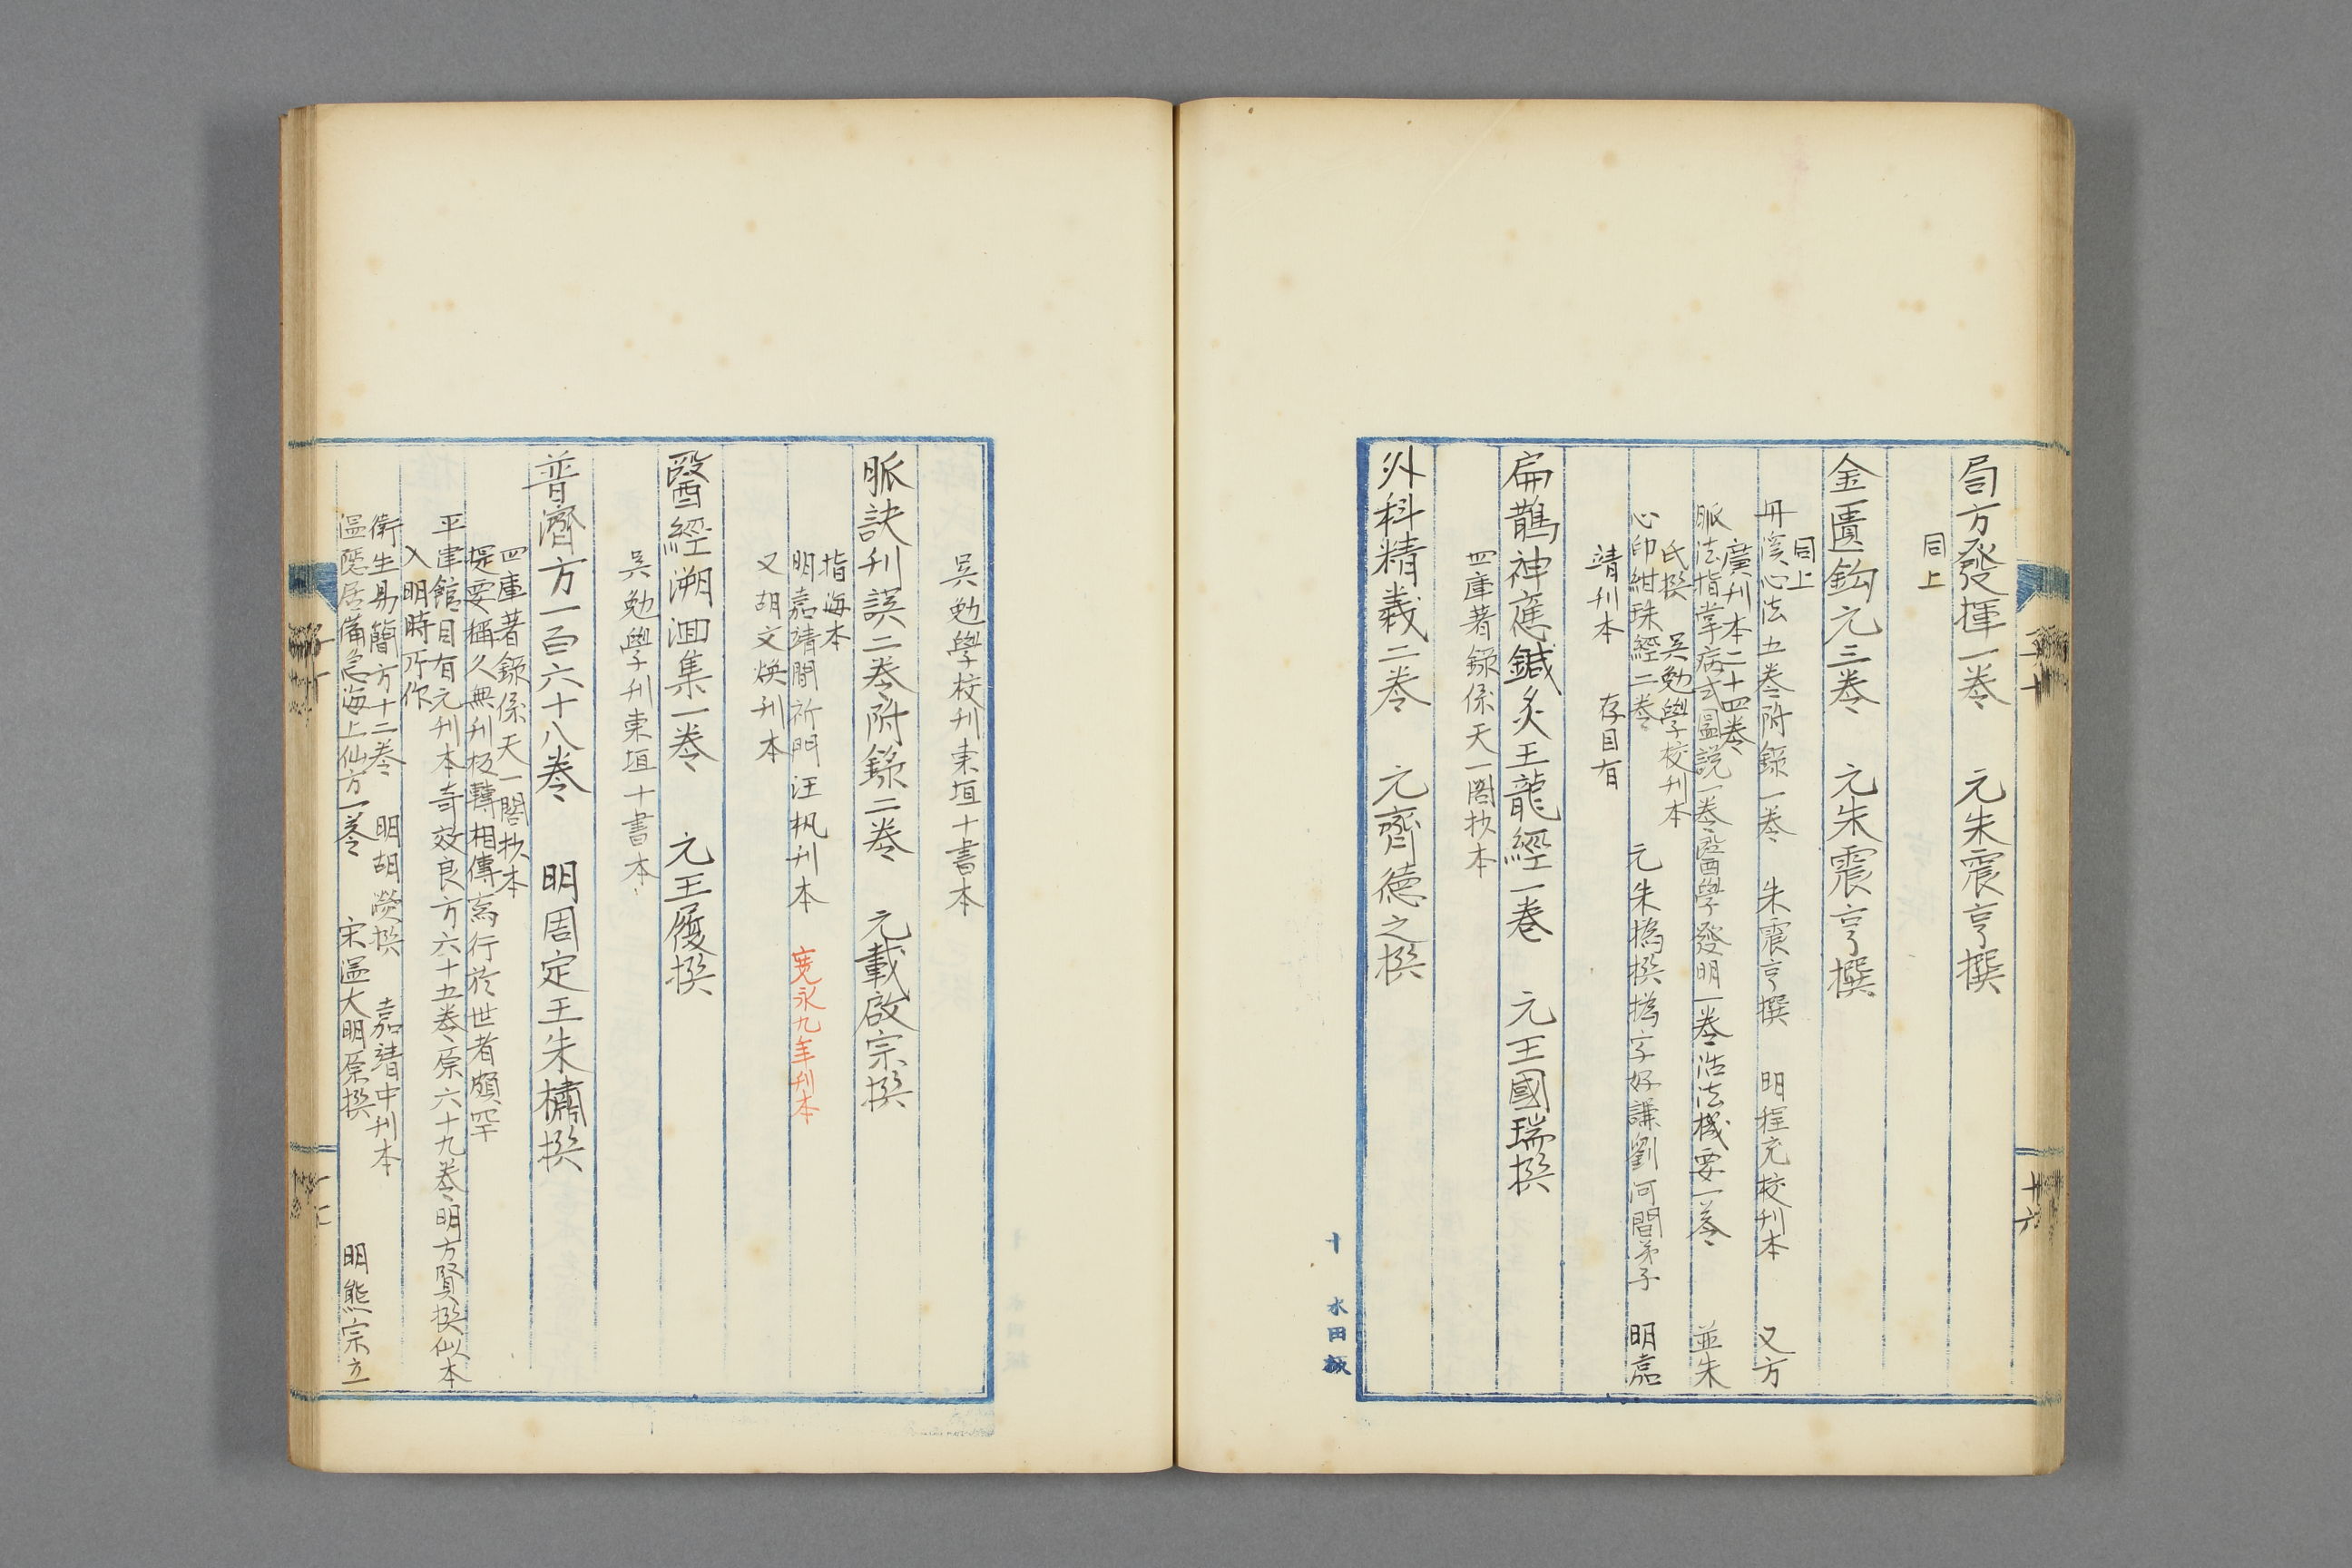 局方發揮一卷　元朱震亨撰
同上
金匱鈎元三卷　元朱震亨撰
同上
丹溪心法五卷附錄一卷　朱震亨撰　明程充校刊本　又方
廣刊本二十四卷
脈法指掌病式圖説一卷醫學發明一卷活法機要一卷　並朱
氏撰　吳勉學校刊本
心印紺珠經二卷　元朱撝撰撝字好謙劉河間弟子　明嘉
靖刊本　存目有
扁鵲神應鍼灸王龍經一卷　元王國瑞撰
四庫著錄係天一閣抄本
外科精義二卷　元齊德之撰
十　水田板
十六
吳勉學校刊東垣十書本
脈訣刊誤二卷附錄二卷　元載啟宗撰
指海本
明嘉靖間祈門汪杋刊本　寛永九年刊本
又胡文煥刊本
醫經溯洄集一卷　元王履撰
吳勉學刊東垣十書本
普濟方一百六十八卷　明周定王朱橚撰
四庫著錄係天一閣抄本
提要稱久無刊板轉相傳寫行於世者頗罕
平津館目有元刊本奇效良方六十五卷原六十九卷明方賢撰似本
入明時所作
衛生易簡方十二卷　明胡濙撰　嘉靖中刊本
温隱居備急海上仙方一卷　宋温大明原撰　明熊宗立